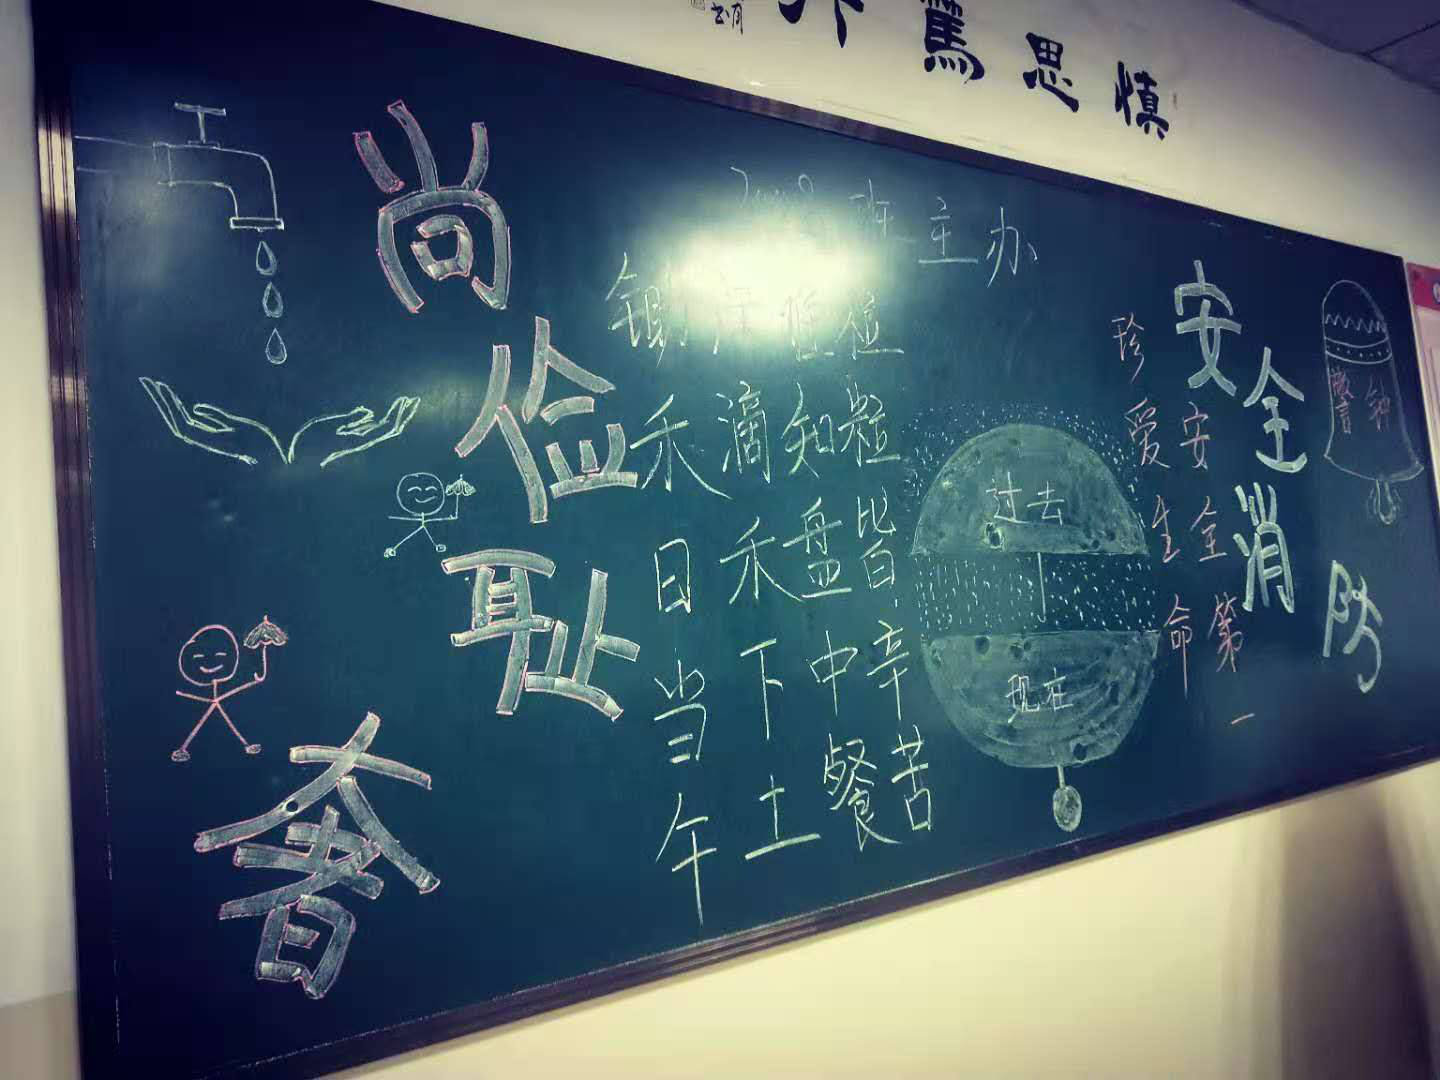 慎思篤
班主办
尚俭耻奢
锄禾日当午
汗滴禾下土
谁知盘中餐
粒粒皆辛苦
过去
现在
珍爱生命
安全第一
安全消防
警钟